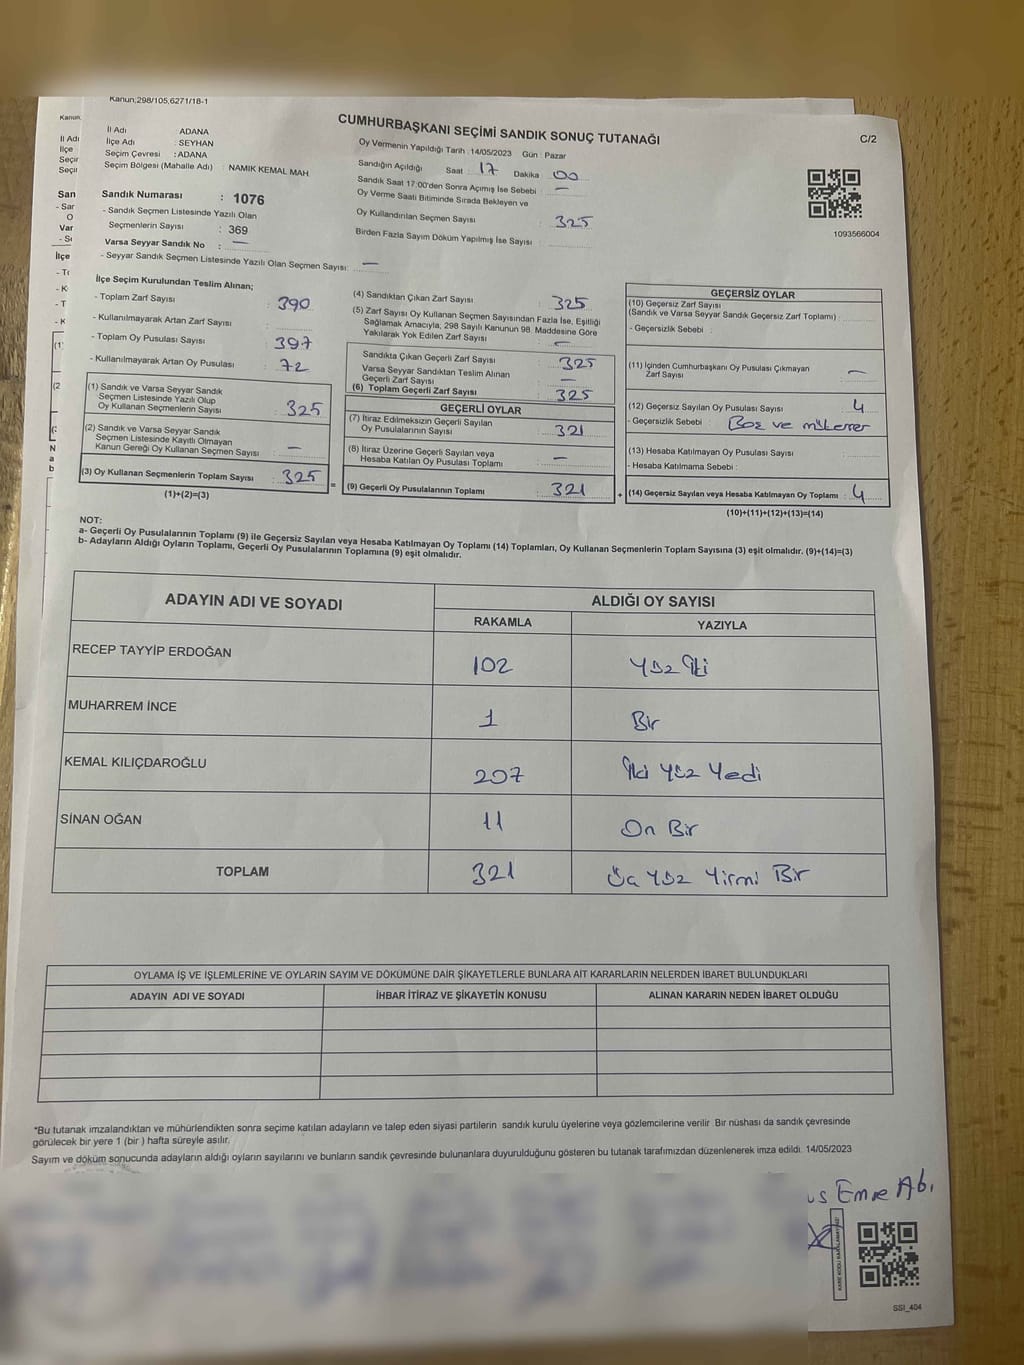 Kanun;298/105,6271/18-1
CUMHURBAŞKANI SEÇİMİ SANDIK SONUÇ TUTANAĞI
C/2
İl Adı : ADANA
İlçe Adı : SEYHAN
Seçim Çevresi : ADANA
Seçim Bölgesi (Mahalle Adı) : NAMIK KEMAL MAH
Sandık Numarası : 1076
- Sandık Seçmen Listesinde Yazılı Olan
Seçmenlerin Sayısı : 369
Varsa Seyyar Sandık No : —
- Seyyar Sandık Seçmen Listesinde Yazılı Olan Seçmen Sayısı: —
Oy Vermenin Yapıldığı Tarih : 14/05/2023 Gün : Pazar
Sandığın Açıldığı Saat : 17 Dakika : 00
Sandık Saat 17:00'den Sonra Açımış İse Sebebi : —
Oy Verme Saati Bitiminde Sırada Bekleyen ve
Oy Kullandırılan Seçmen Sayısı : 325
Birden Fazla Sayım Döküm Yapılmış İse Sayısı :
1093566004
İlçe Seçim Kurulundan Teslim Alınan;
- Toplam Zarf Sayısı : 390
- Kullanılmayarak Artan Zarf Sayısı :
- Toplam Oy Pusulası Sayısı : 397
- Kullanılmayarak Artan Oy Pusulası : 72
(1) Sandık ve Varsa Seyyar Sandık
Seçmen Listesinde Yazılı Olup
Oy Kullanan Seçmenlerin Sayısı : 325
(2) Sandık ve Varsa Seyyar Sandık
Seçmen Listesinde Kayıtlı Olmayan
Kanun Gereği Oy Kullanan Seçmen Sayısı : —
(3) Oy Kullanan Seçmenlerin Toplam Sayısı : 325
(1)+(2)=(3)
(4) Sandıktan Çıkan Zarf Sayısı : 325
(5) Zarf Sayısı Oy Kullanan Seçmen Sayısından Fazla İse, Eşitliği
Sağlamak Amacıyla, 298 Sayılı Kanunun 98. Maddesine Göre
Yakılarak Yok Edilen Zarf Sayısı : —
Sandıkta Çıkan Geçerli Zarf Sayısı : 325
Varsa Seyyar Sandıktan Teslim Alınan
Geçerli Zarf Sayısı : —
(6) Toplam Geçerli Zarf Sayısı : 325
GEÇERLİ OYLAR
(7) İtiraz Edilmeksizin Geçerli Sayılan
Oy Pusulalarının Sayısı : 321
(8) İtiraz Üzerine Geçerli Sayılan veya
Hesaba Katılan Oy Pusulası Toplamı : —
= (9) Geçerli Oy Pusulalarının Toplamı : 321
GEÇERSİZ OYLAR
(10) Geçersiz Zarf Sayısı
(Sandık ve Varsa Seyyar Sandık Geçersiz Zarf Toplamı) :
- Geçersizlik Sebebi :
(11) İçinden Cumhurbaşkanı Oy Pusulası Çıkmayan
Zarf Sayısı : —
(12) Geçersiz Sayılan Oy Pusulası Sayısı : 4
- Geçersizlik Sebebi : Boş ve mükerrer
(13) Hesaba Katılmayan Oy Pusulası Sayısı :
- Hesaba Katılmama Sebebi :
+ (14) Geçersiz Sayılan veya Hesaba Katılmayan Oy Toplamı : 4
(10)+(11)+(12)+(13)=(14)
NOT:
a- Geçerli Oy Pusulalarının Toplamı (9) ile Geçersiz Sayılan veya Hesaba Katılmayan Oy Toplamı (14) Toplamları, Oy Kullanan Seçmenlerin Toplam Sayısına (3) eşit olmalıdır. (9)+(14)=(3)
b- Adayların Aldığı Oyların Toplamı, Geçerli Oy Pusulalarının Toplamına (9) eşit olmalıdır.
ADAYIN ADI VE SOYADI ALDIĞI OY SAYISI
RAKAMLA YAZIYLA
RECEP TAYYİP ERDOĞAN 102 Yüz İki
MUHARREM İNCE 1 Bir
KEMAL KILIÇDAROĞLU 207 İki Yüz Yedi
SİNAN OĞAN 11 On Bir
TOPLAM 321 Üç Yüz Yirmi Bir
OYLAMA İŞ VE İŞLEMLERİNE VE OYLARIN SAYIM VE DÖKÜMÜNE DAİR ŞİKAYETLERLE BUNLARA AİT KARARLARIN NELERDEN İBARET BULUNDUKLARI
ADAYIN ADI VE SOYADI İHBAR İTİRAZ VE ŞİKAYETİN KONUSU ALINAN KARARIN NEDEN İBARET OLDUĞU
*Bu tutanak imzalandıktan ve mühürlendikten sonra seçime katılan adayların ve talep eden siyasi partilerin sandık kurulu üyelerine veya gözlemcilerine verilir. Bir nüshası da sandık çevresinde
görülecek bir yere 1 (bir ) hafta süreyle asılır.
Sayım ve döküm sonucunda adayların aldığı oyların sayılarını ve bunların sandık çevresinde bulunanlara duyurulduğunu gösteren bu tutanak tarafımızdan düzenlenerek imza edildi. 14/05/2023
us Emre Abi
SSI_404